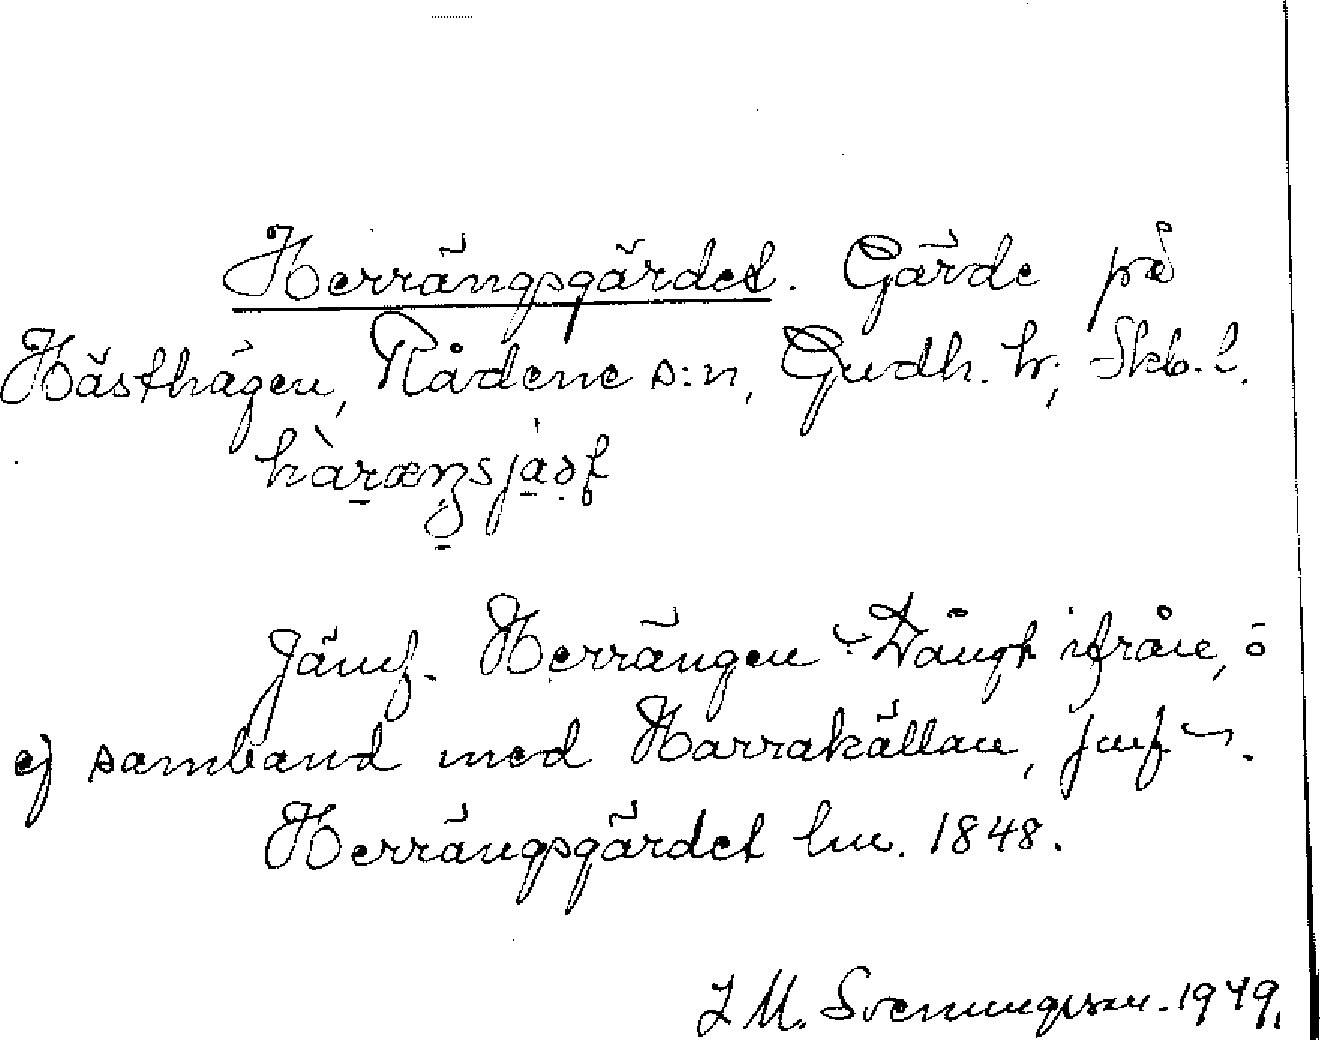 Herrängsgärdet. Gärde på
Hästhagen, Rådene s:n, Gudh. hr, Skb. l.
hàrænsjàṣf
Jämf. Herrängen. Långt ifrån, o
ej samband med Harrakällan, jmf
Herrängsgärdet lm. 1848.
I M. Svenungsson. 1949.